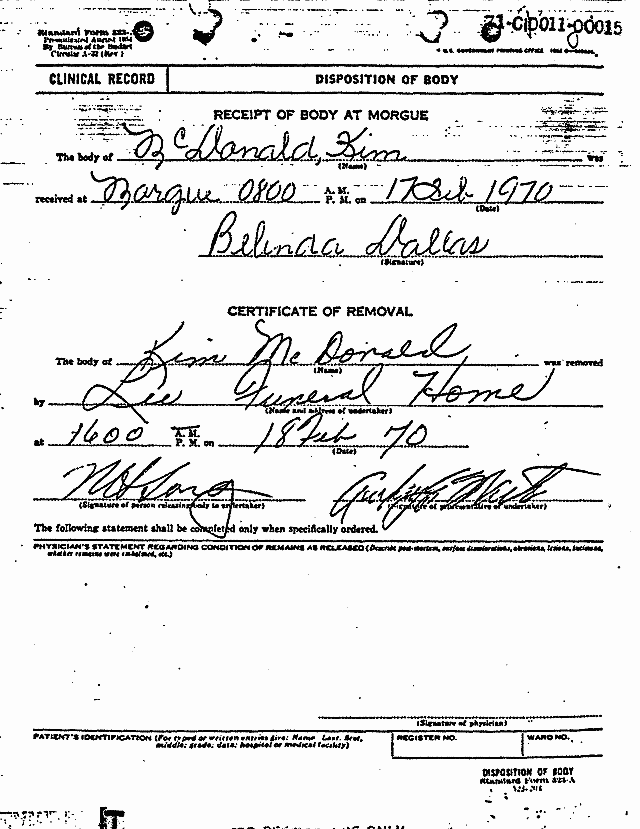 71-CID011-00015
Standard Form 523-
Promulgated August 1954
By Bureau of the Budget
Circular A-32 (Rev.)
U.S. GOVERNMENT PRINTING OFFICE
CLINICAL RECORD
DISPOSITION OF BODY
RECEIPT OF BODY AT MORGUE
The body of McDonald, Kim was
(Name)
received at Morgue 0800 A. M. P. M. on 17 Feb 1970
(Date)
Belinda Dallas
(Signature)
CERTIFICATE OF REMOVAL
The body of Kim McDonald was removed
(Name)
by Lee Funeral Home
(Name and address of undertaker)
at 1600 A. M. P. M. on 18 Feb 70
(Date)
(Signature of person releasing body to undertaker)
(Signature of representative of undertaker)
The following statement shall be completed only when specifically ordered.
PHYSICIAN'S STATEMENT REGARDING CONDITION OF REMAINS AS RELEASED (Describe post-mortem, surface discolorations, abrasions, lesions, incisions,
whether remains were embalmed, etc.)
(Signature of physician)
PATIENT'S IDENTIFICATION (For typed or written entries give: Name Last, first,
middle; grade; date; hospital or medical facility)
REGISTER NO.
WARD NO.
DISPOSITION OF BODY
Standard Form 523-A